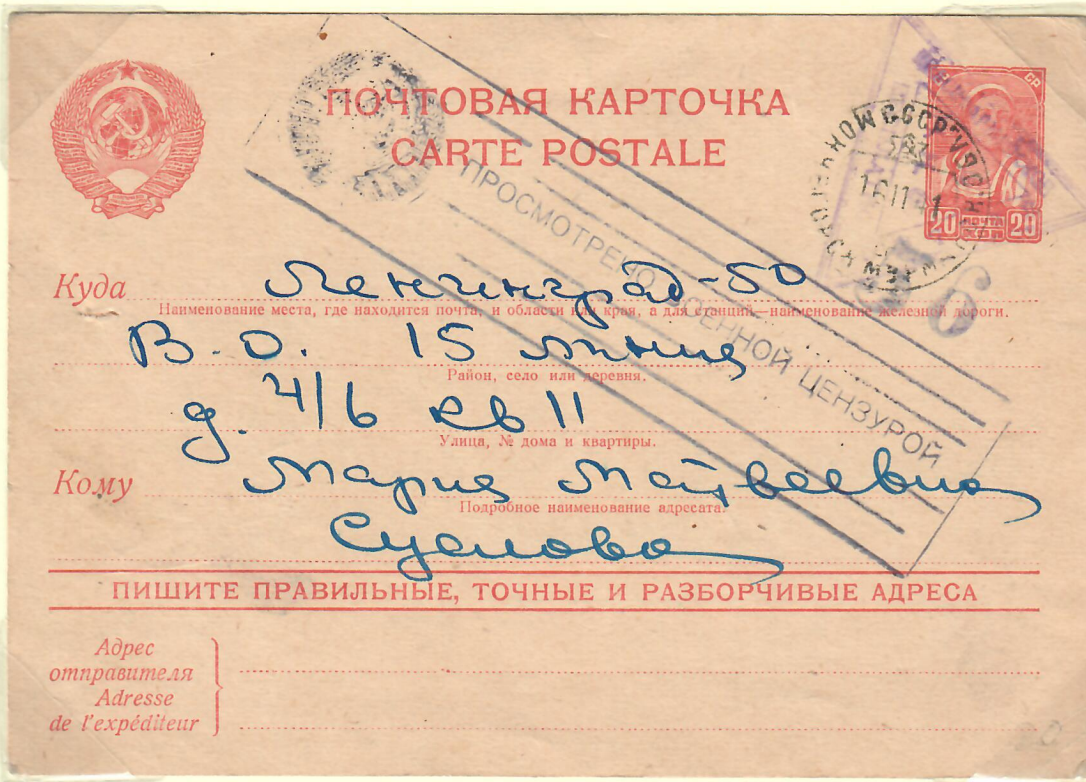 ПОЧТОВАЯ КАРТОЧКА
CARTE POSTALE
СССР
16 11 41
20 ПОЧТА 20
6
ПРОСМОТРЕНО ВОЕННОЙ ЦЕНЗУРОЙ
Куда Ленинград-50
Наименование места, где находится почта, и области или края, а для станций—наименование железной дороги.
В.О. 15 линия
Район, село или деревня.
д. 4/6 кв 11
Улица, № дома и квартиры.
Кому Мария Матвеевна
Подробное наименование адресата.
Суслова
ПИШИТЕ ПРАВИЛЬНЫЕ, ТОЧНЫЕ И РАЗБОРЧИВЫЕ АДРЕСА
Адрес
отправителя
Adresse
de l'expéditeur